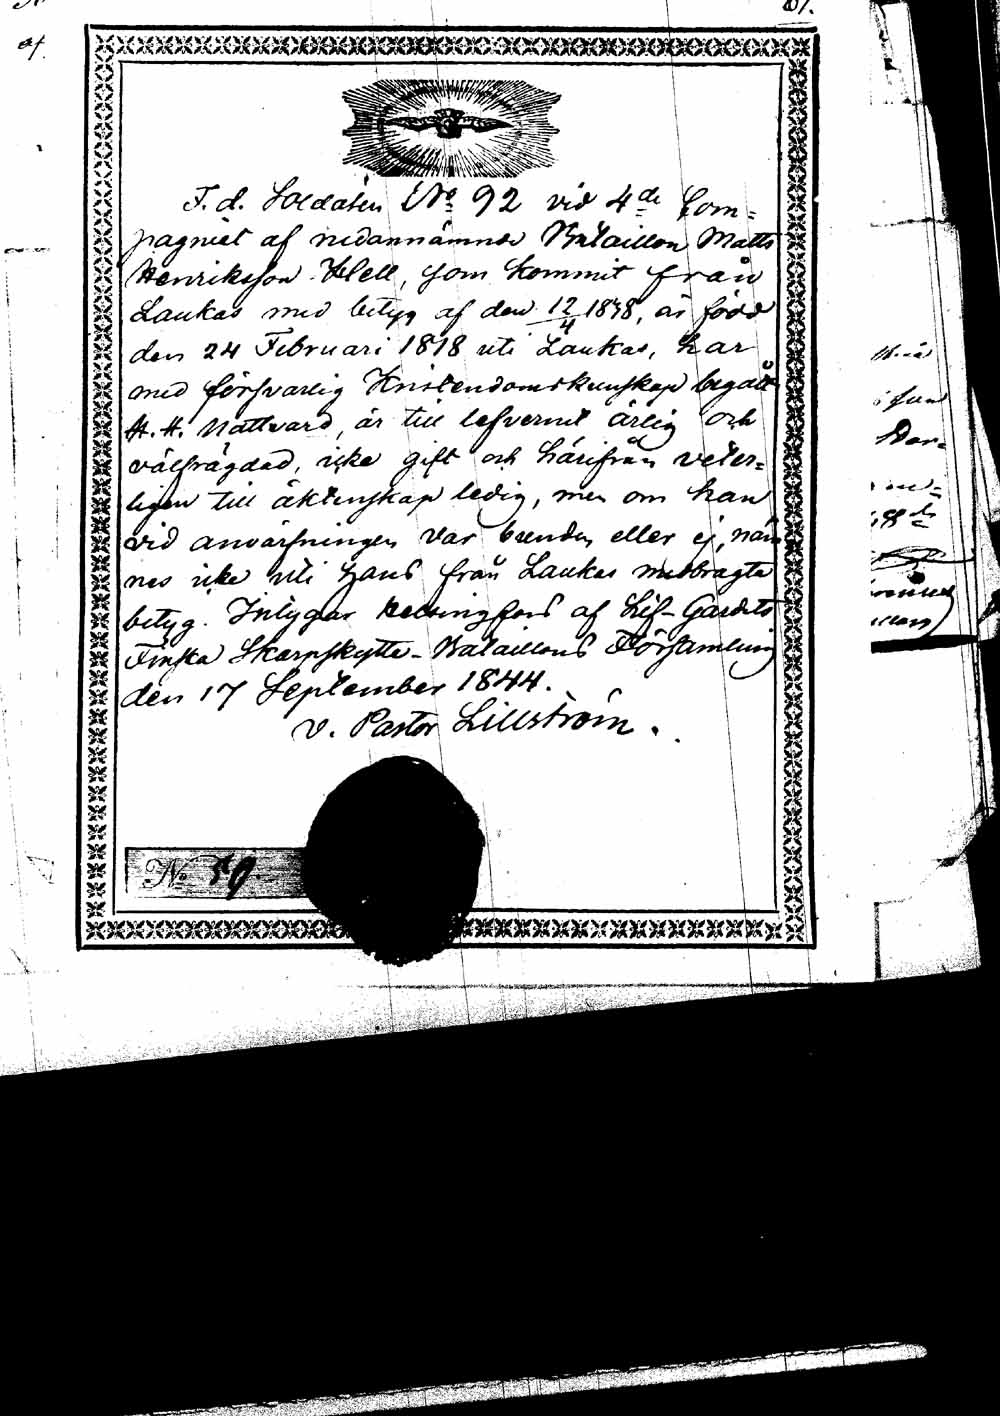 af.
F. d. Soldaten No 92 vid 4de Com=
pagniet af nedannämnde Bataillon Matts
Henriksson Hell, som kommit från
Laukas med betyg af den 12/4 1838, är född
den 24 Februari 1818 uti Laukas, har
med försvarlig Kristendomskunskap begått
H. H. Nattvard, är till lefvernet ärlig och
välfrägdad, icke gift och härifrån veter=
ligen till äktenskap ledig, men om han
vid anvärfningen var bunden eller ej, näm
nes icke uti hans från Laukas medbragte
betyg. Intygar Helsingfors af Lif-Gardets
Finska Skarpskytte-Bataillons Församling
den 17 September 1844.
V. Pastor Lillström.
No 59.